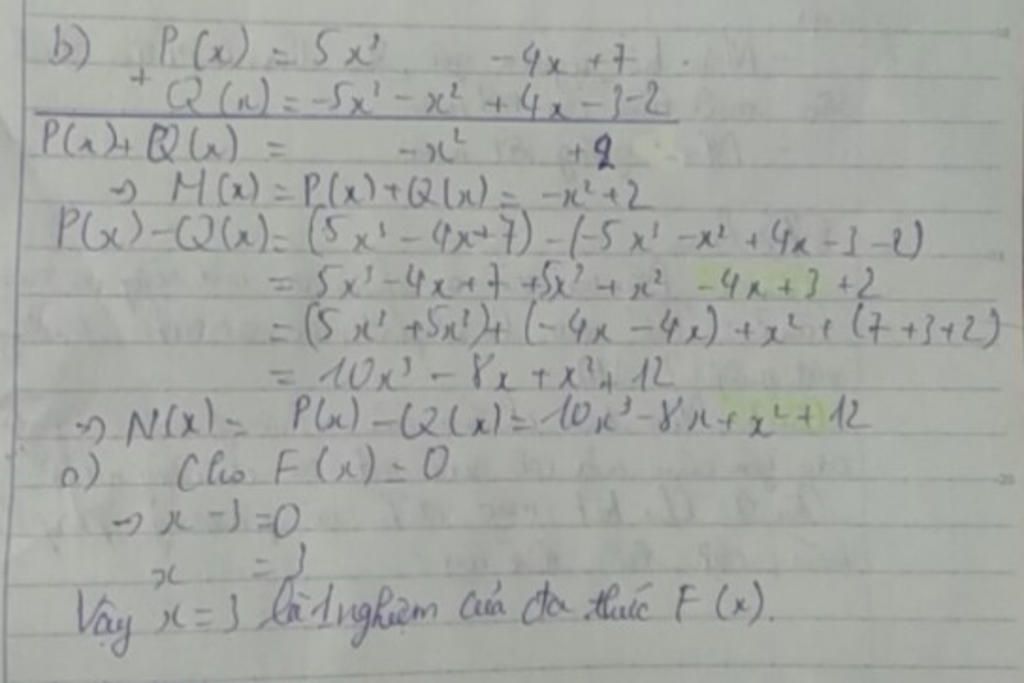 b) P(x) = 5x³ - 4x + 7.
+ Q(x) = -5x³ - x² + 4x - 3 - 2
P(x) + Q(x) = -x² + 2
→ M(x) = P(x) + Q(x) = -x² + 2
P(x) - Q(x) = (5x³ - 4x + 7) - (-5x³ - x² + 4x - 3 - 2)
= 5x³ - 4x + 7 + 5x³ + x² - 4x + 3 + 2
= (5x³ + 5x³) + (-4x - 4x) + x² + (7 + 3 + 2)
= 10x³ - 8x + x² + 12
→ N(x) = P(x) - Q(x) = 10x³ - 8x + x² + 12
Cho F(x) = 0
→ x - 3 = 0
x = 3
Vậy x = 3 là 1 nghiệm của đa thức F(x).